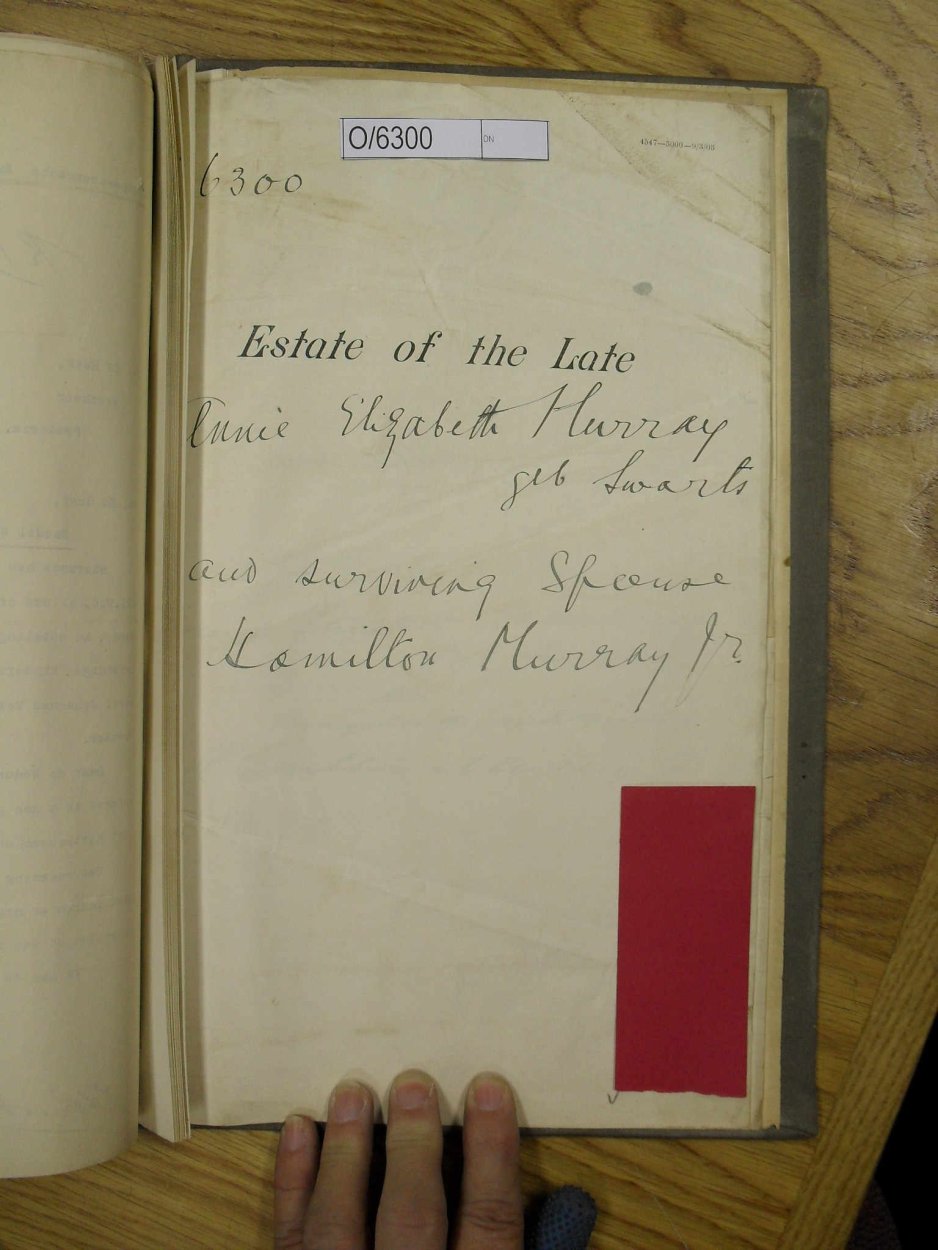 O/6300 ON
4547—5000—9/3/03
6300
Estate of the Late
Annie Elizabeth Murray
geb Swarts
and surviving Spouse
Hamilton Murray Jr.